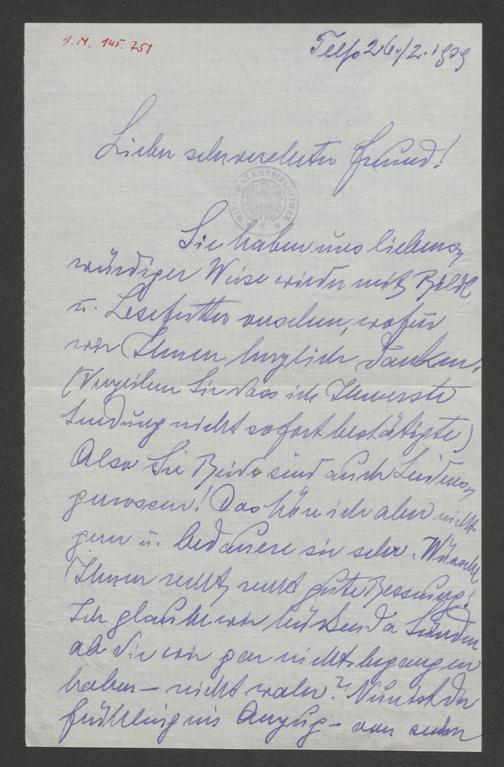 I.N. 145.751
Telfs 26./2. 1939
Lieber sehrverehrter Freund!
Sie haben uns liebens-
würdiger Weise wieder mit Bildl
u. Lesefutter versehen, wofür
wir Ihnen herzlich danken.
(Verzeihen Sie dass ich Ihre erste
Sendung nicht sofort bestätigte)
Also Sie Beide sind auch Leidens-
genossen! Das höre ich aber nicht
gern u. bedauere sie sehr. Wünsche
Ihnen recht, recht gute Besserung!
Ich glaube wir büssen da Sünden
ab die wir gar nicht begangen
haben – nicht wahr? Nun ist der
Frühling im Anzug – von